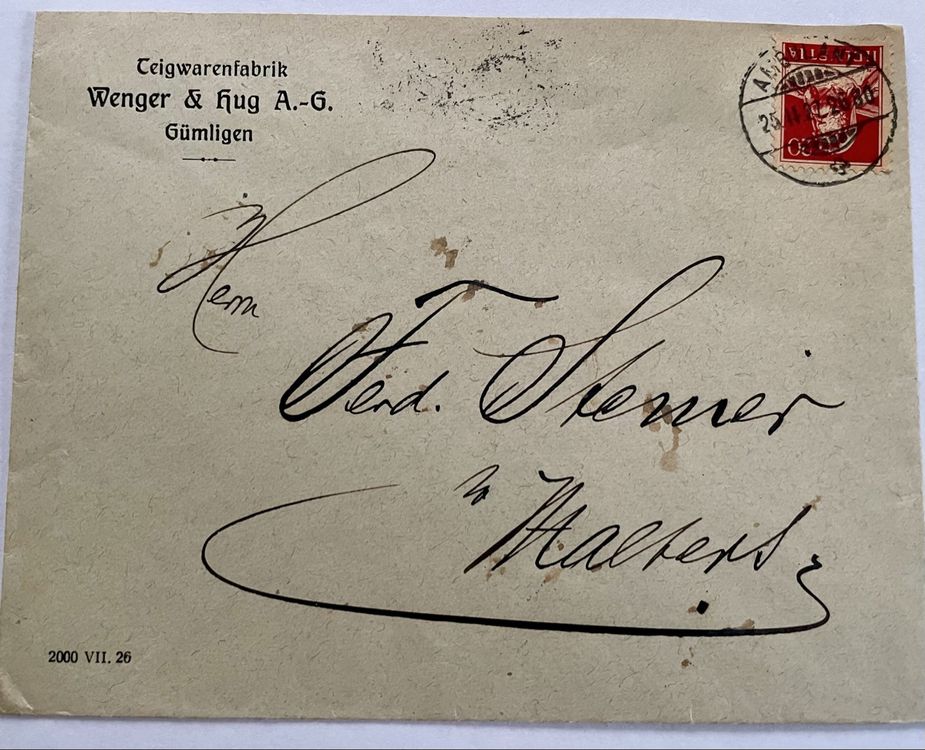 Teigwarenfabrik
Wenger & Hug A.-G.
Gümligen
HELVETIA
20
Herrn
Ferd. Steiner
in Malters
2000 VII. 26